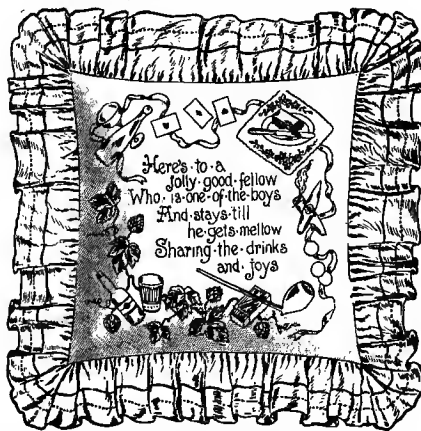 Here's·to·a
Jolly·good·fellow
Who·is·one·of·the·boys
And·stays·till
he·gets·mellow
Sharing·the·drinks
and·joys